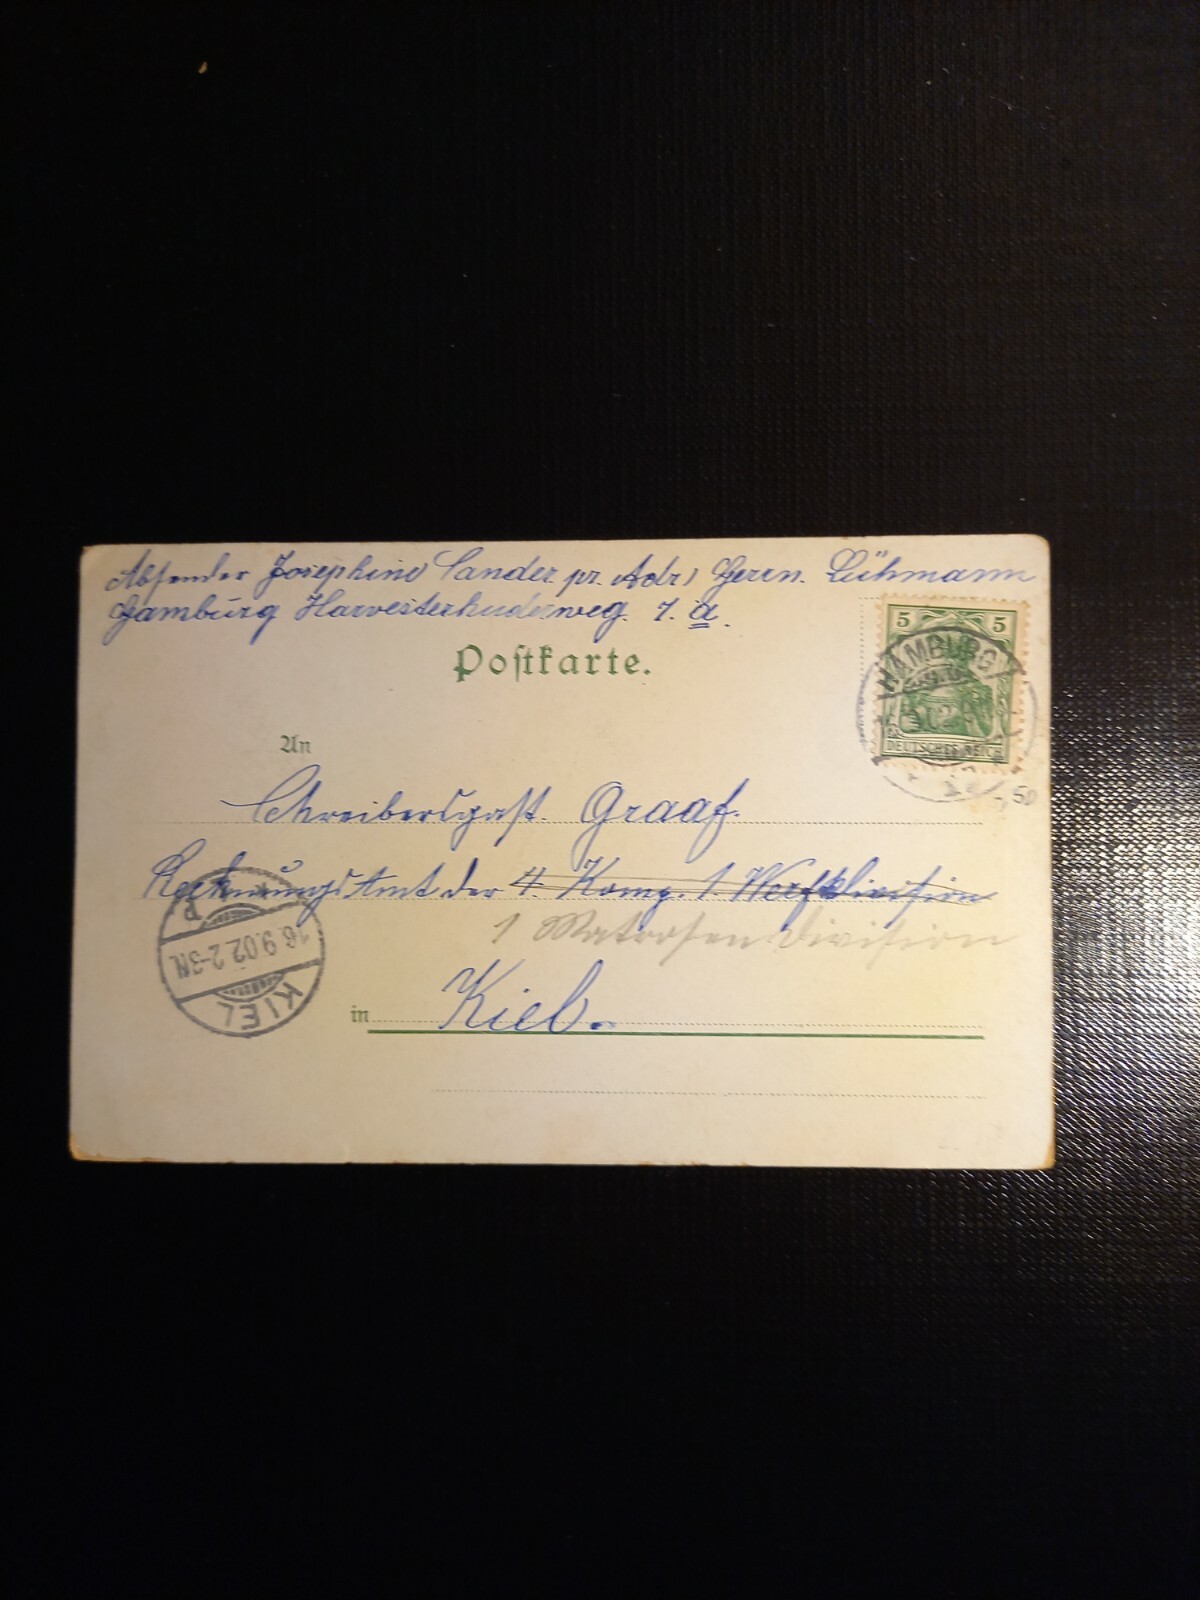 Absender Josephine Sander pr. Adr. Herrn. Lühmann
Hamburg Harvesterhuderweg. 7. a.
5 5
HAMBURG
DEUTSCHES REICH
Postkarte.
An
Schreibersgast. Graaf.
Rechnungs Amt der 4. Komp. 1. Werftdivision
1 Matrosen Division
in Kiel.
KIEL
16.9.02 2-3N.
P
50